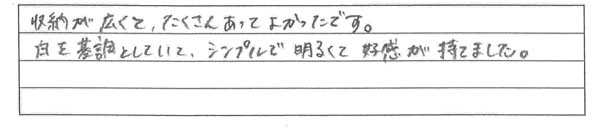 収納が広くて、たくさんあってよかったです。
白を基調としていて、シンプルで明るくて好感が持てました。